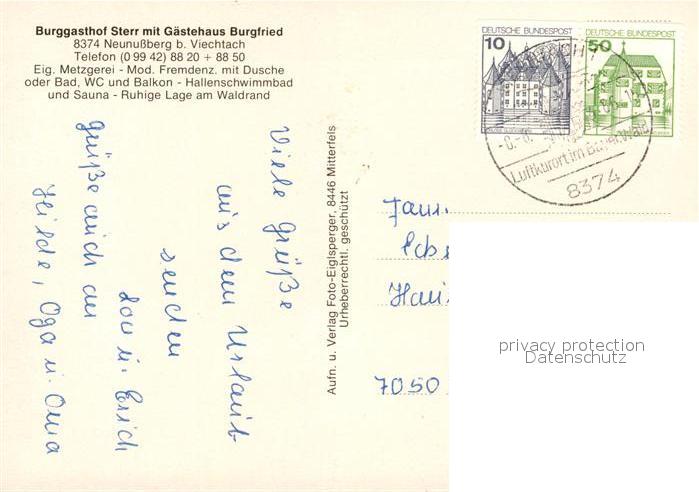 Burggasthof Sterr mit Gästehaus Burgfried
8374 Neunußberg b. Viechtach
Telefon (0 99 42) 88 20 + 88 50
Eig. Metzgerei - Mod. Fremdenz. mit Dusche
oder Bad, WC und Balkon - Hallenschwimmbad
und Sauna - Ruhige Lage am Waldrand
Viele Grüße
aus dem Urlaub
senden
Lou u. Erich
grüße auch an
Hilde, Oga u. Oma
Aufn. u. Verlag Foto-Eiglsperger, 8446 Mitterfels
Urheberrechtl. geschützt
DEUTSCHE BUNDESPOST
10
DEUTSCHE BUNDESPOST
50
Luftkurort im Bayer. Wald
8374
Fam.
7050
privacy protection
Datenschutz